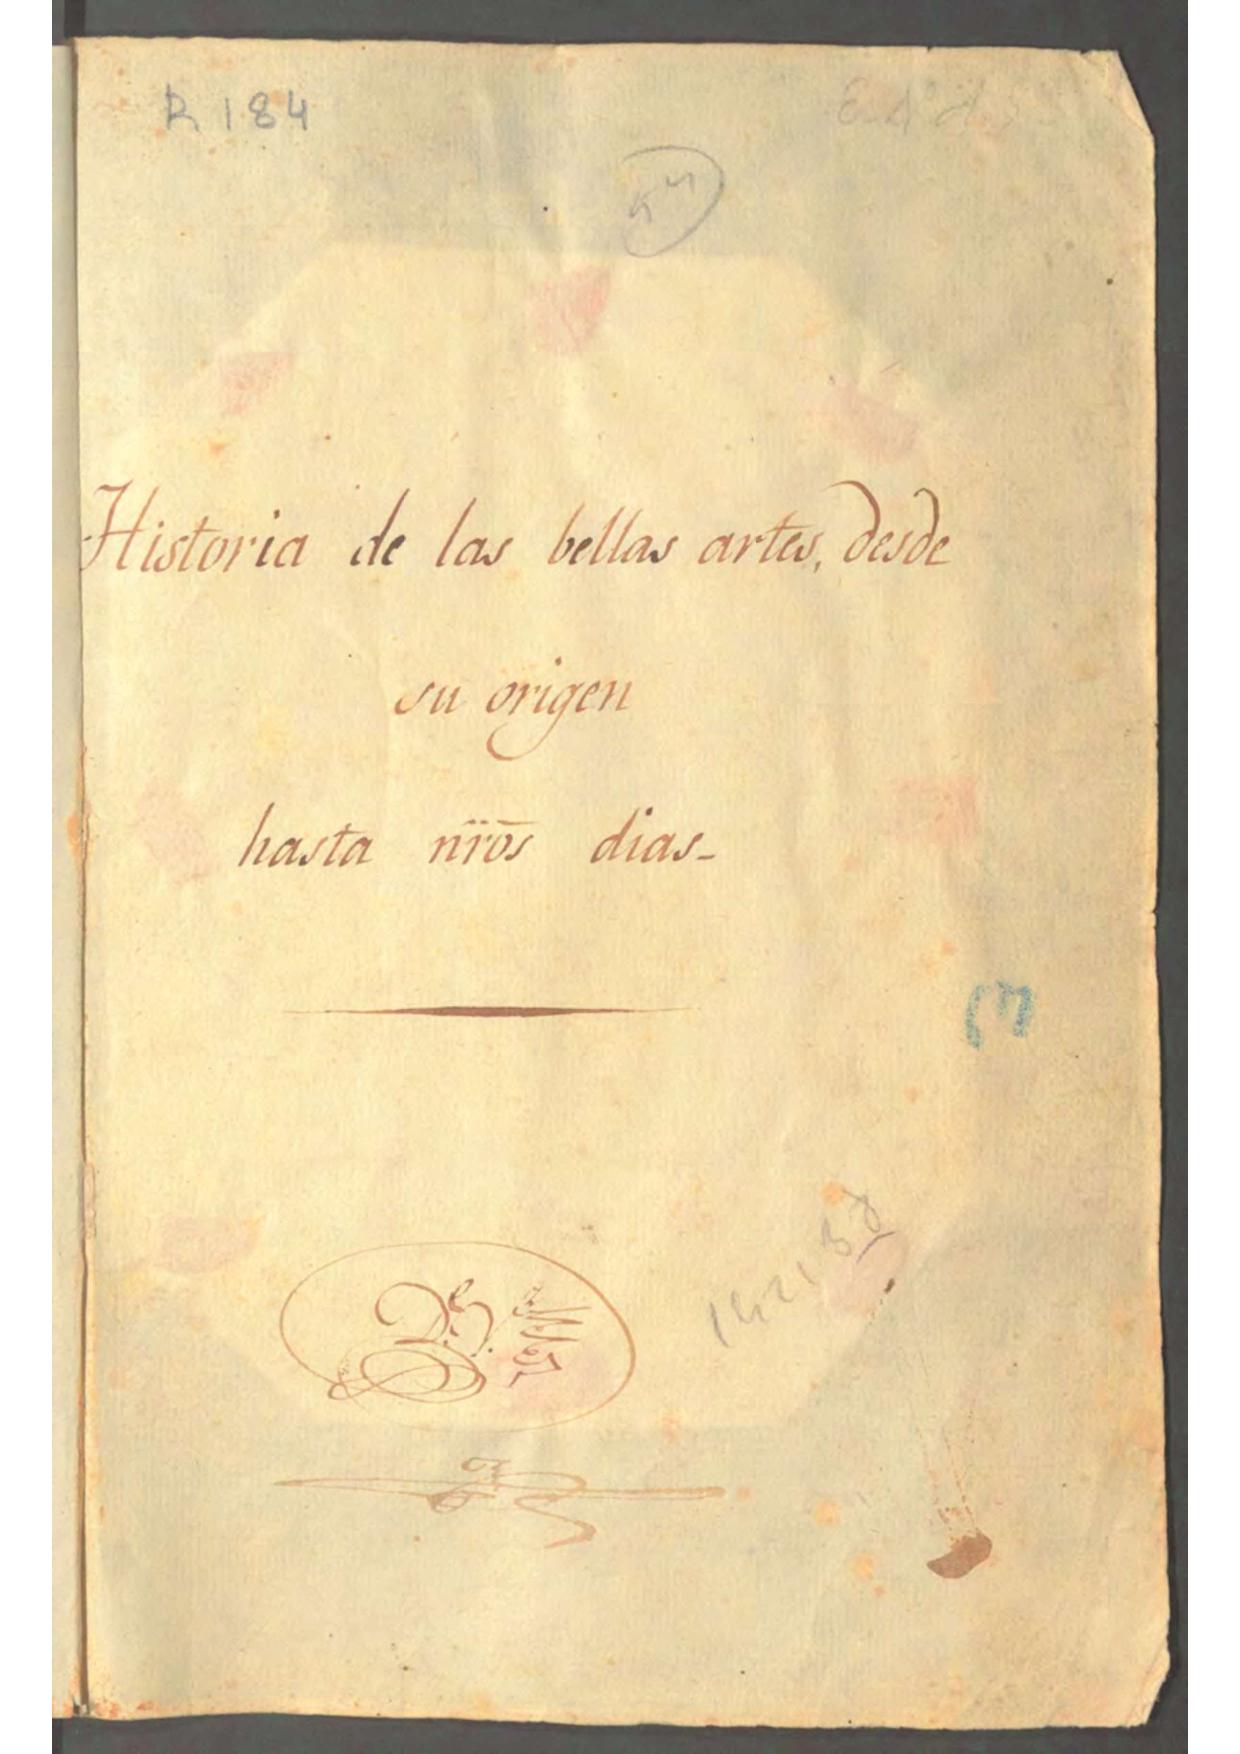 R 184
Historia de las bellas artes, desde
su origen
hasta nr̄ōs dias-